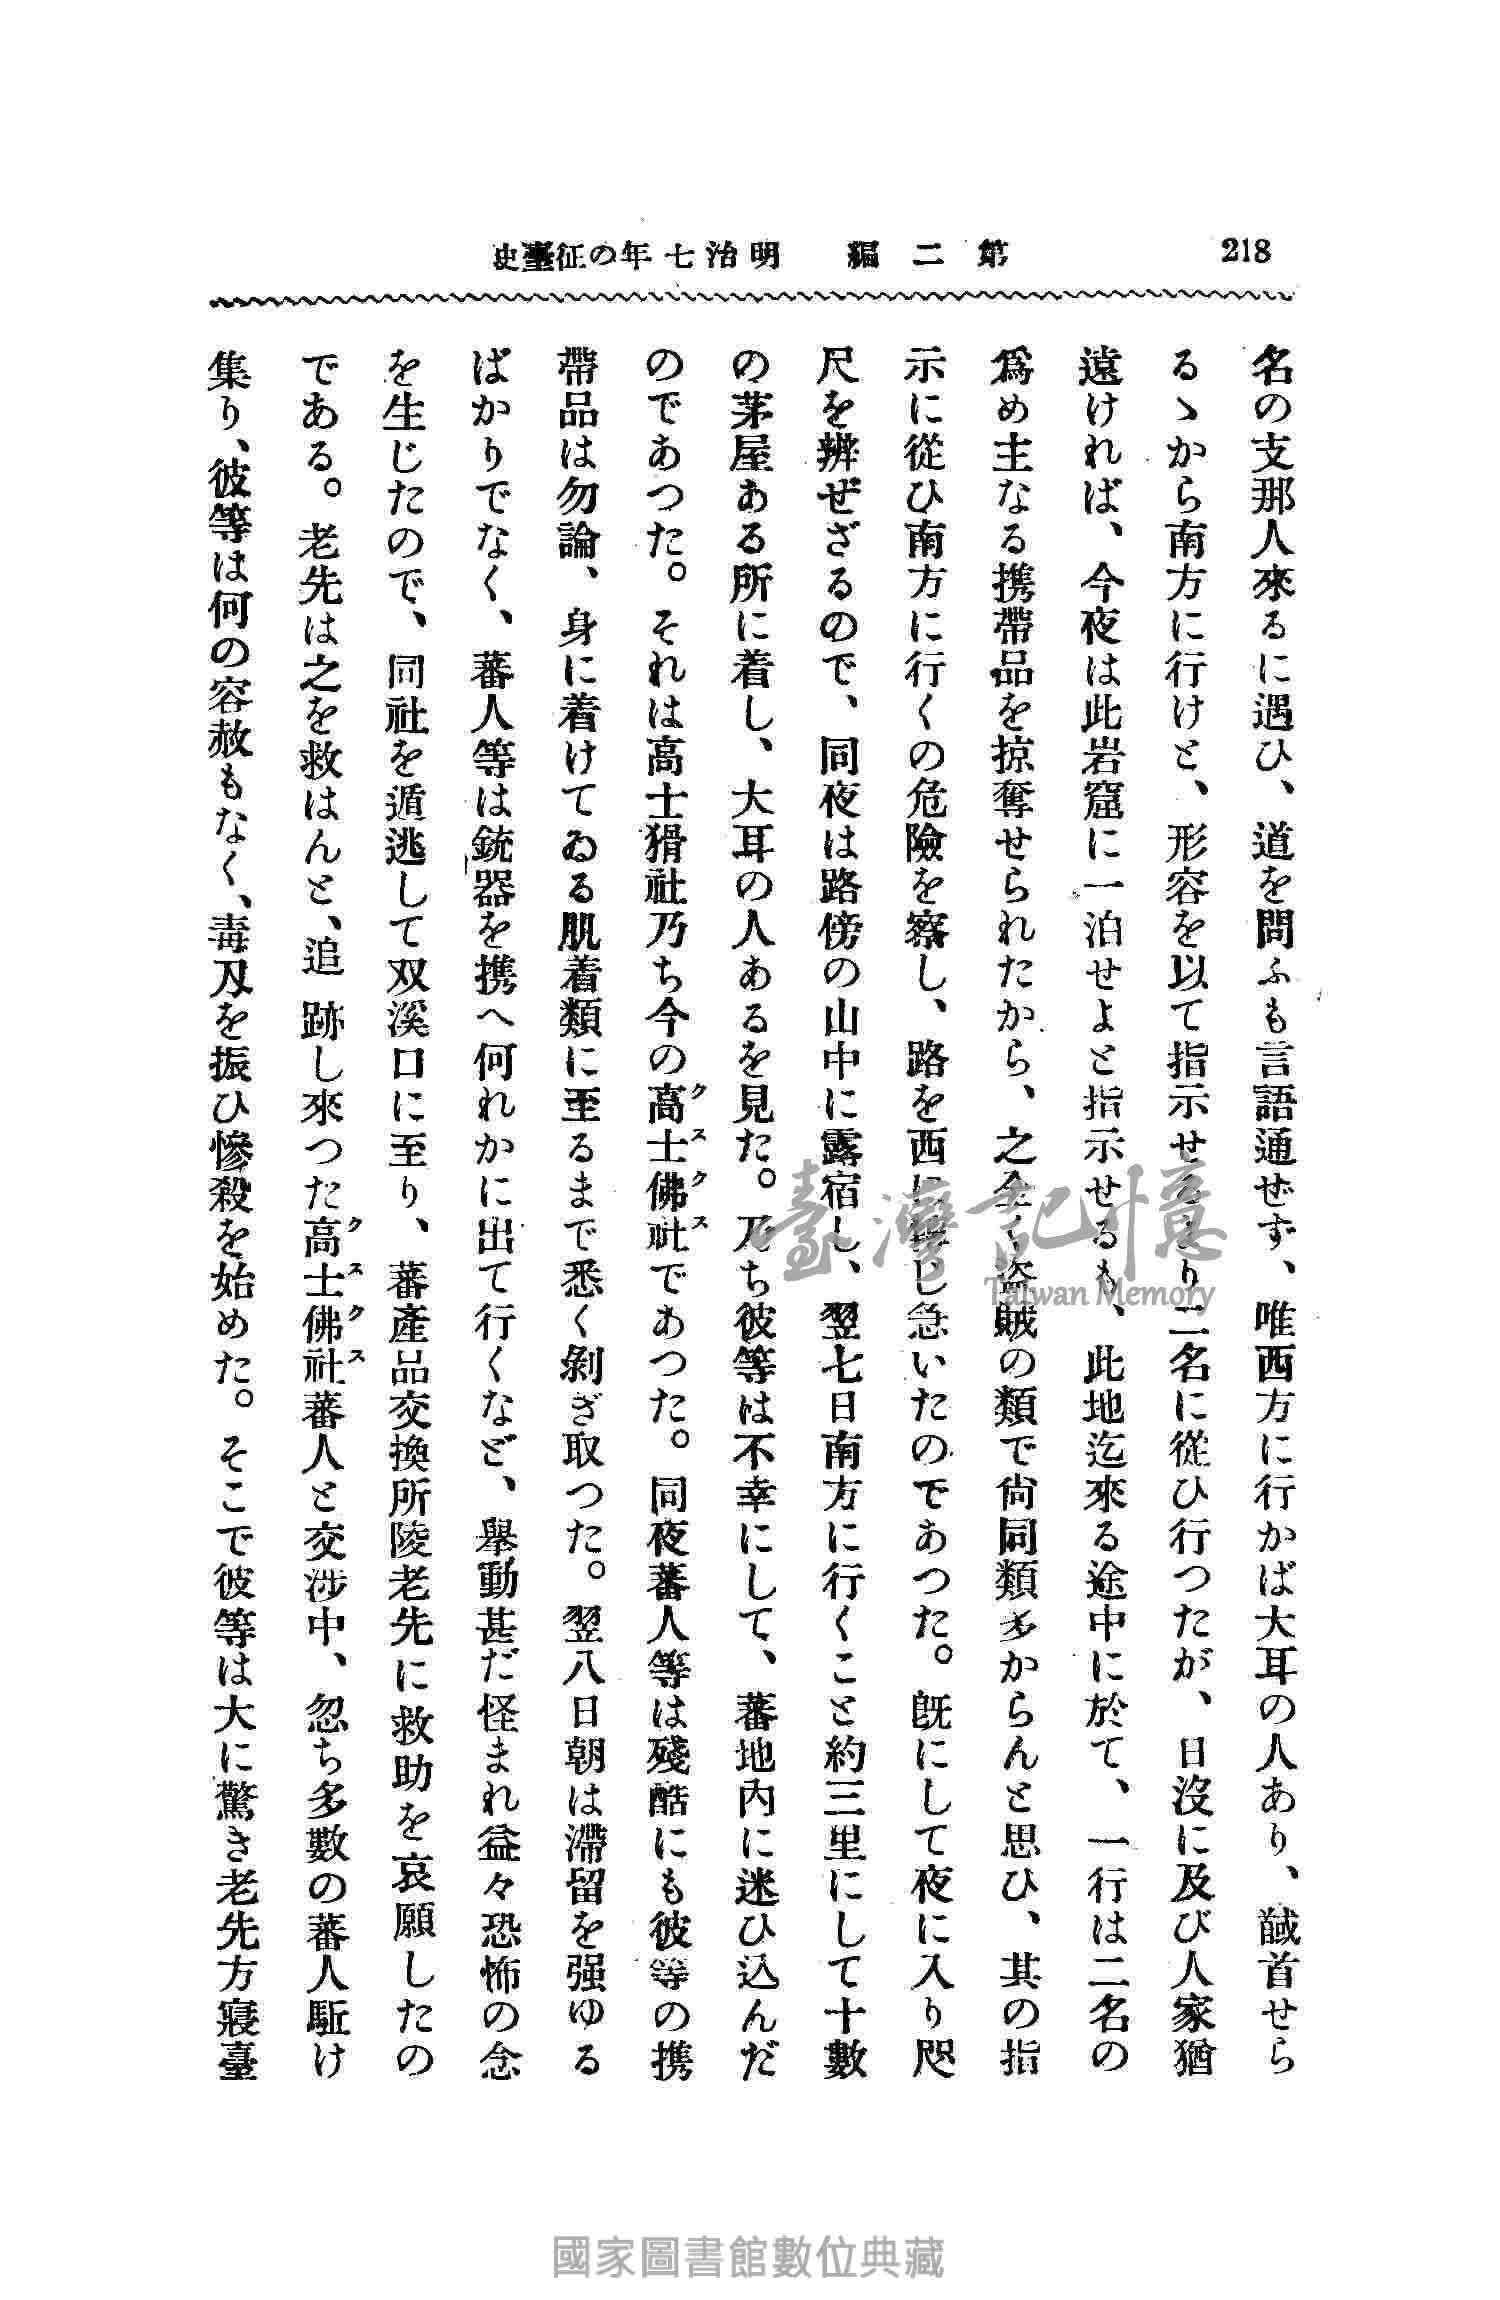 218
第二編　明治七年の征臺史
名の支那人來るに遇ひ、道を問ふも言語通ぜず、唯西方に行かば大耳の人あり、馘首せら
るゝから南方に行けと、形容を以て指示せるより二名に從ひ行つたが、日沒に及び人家猶
遠ければ、今夜は此岩窟に一泊せよと指示せるも、此地迄來る途中に於て、一行は二名の
爲め主なる携帶品を掠奪せられたから、之全く盜賊の類で尙同類多からんと思ひ、其の指
示に從ひ南方に行くの危險を察し、路を西に轉じ急いたのであつた。既にして夜に入り咫
尺を辨ぜざるので、同夜は路傍の山中に露宿し、翌七日南方に行くこと約三里にして十數
の茅屋ある所に着し、大耳の人あるを見た。乃ち彼等は不幸にして、蕃地內に迷ひ込んだ
のであつた。それは高士猾社乃ち今の高士佛社であつた。同夜蕃人等は殘酷にも彼等の携
クスクス
帶品は勿論、身に着けてゐる肌着類に至るまで悉く剝ぎ取つた。翌八日朝は滯留を强ゆる
ばかりでなく、蕃人等は銃器を携へ何れかに出て行くなど、擧動甚だ怪まれ益々恐怖の念
を生じたので、同社を遁逃して双溪口に至り、蕃產品交換所陵老先に救助を哀願したの
である。老先は之を救はんと、追跡し來つた高士佛社蕃人と交涉中、忽ち多數の蕃人駈け
クスクス
集り、彼等は何の容赦もなく、毒刀を振ひ慘殺を始めた。そこで彼等は大に驚き老先方寢臺
臺灣記憶
Taiwan Memory
國家圖書館數位典藏